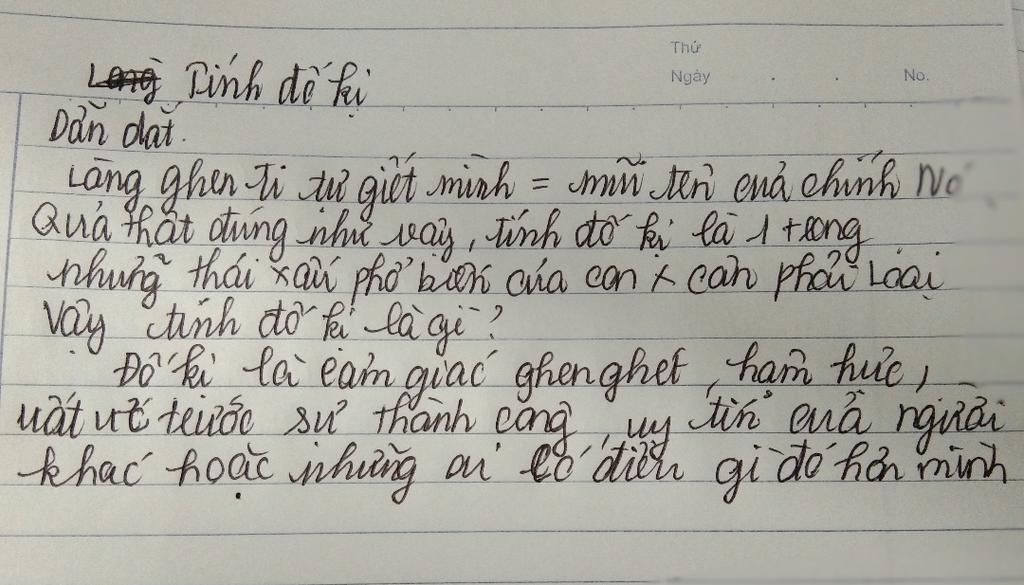 Thứ
Ngày . . No.
Tính đố kị
Dẫn dắt.
Lòng ghen tị tự giết mình = mũi tên của chính nó
Quả thật đúng như vậy, tính đố kị là 1 trong
những thái xấu phổ biến của con x cần phải loại
Vậy tính đố kị là gì?
Đố kị là cảm giác ghen ghét, hậm hực,
uất ức trước sự thành công, uy tín của người
khác hoặc những ai có điều gì đó hơn mình